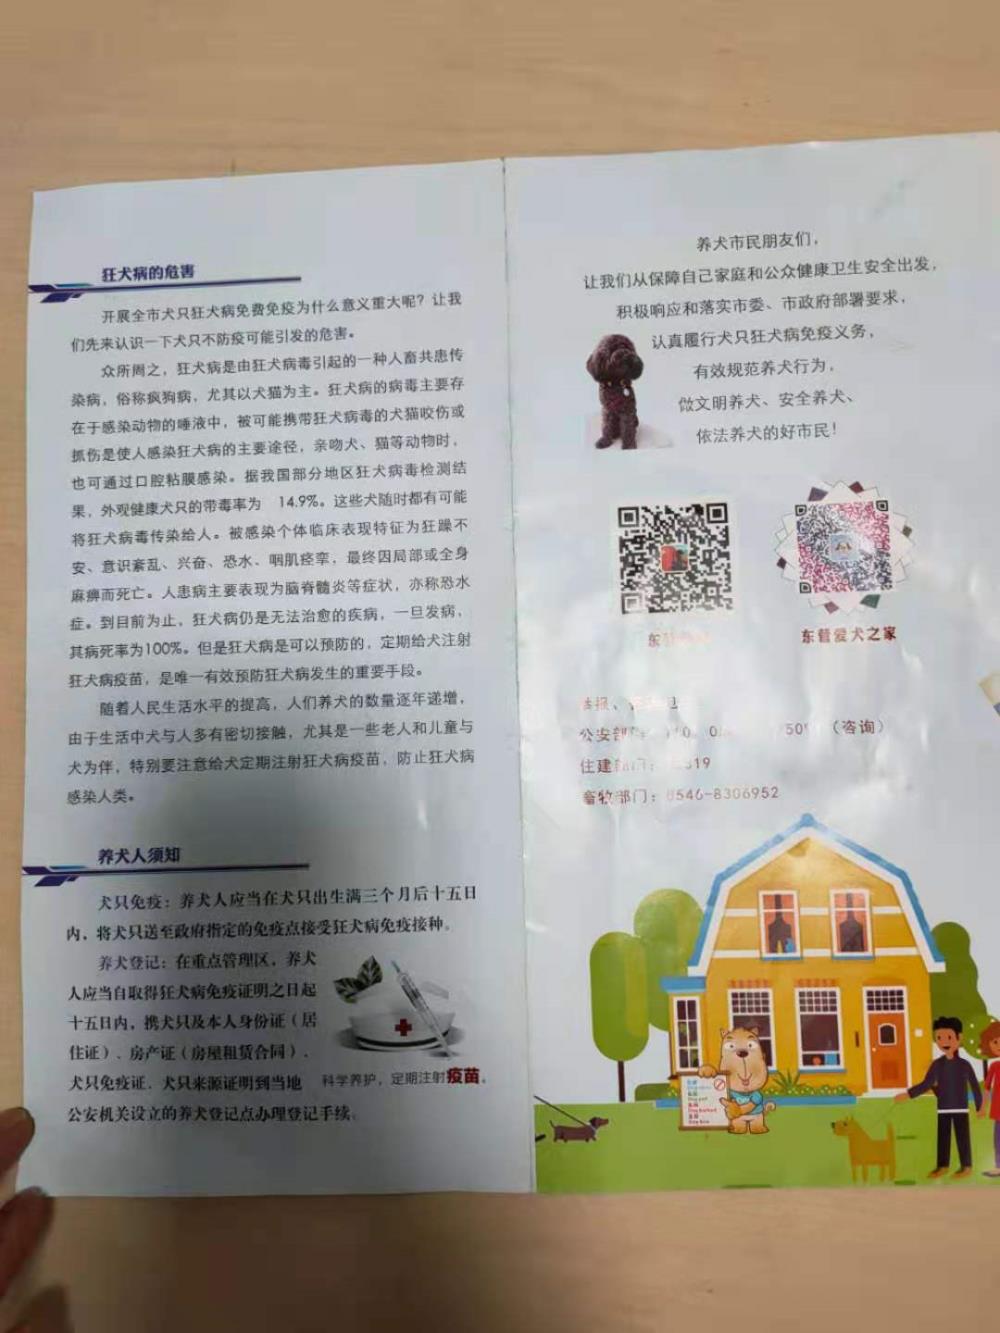 狂犬病的危害
开展全市犬只狂犬病免费免疫为什么意义重大呢？让我
们先来认识一下犬只不防疫可能引发的危害。
众所周之，狂犬病是由狂犬病毒引起的一种人畜共患传
染病，俗称疯狗病，尤其以犬猫为主。狂犬病的病毒主要存
在于感染动物的唾液中，被可能携带狂犬病毒的犬猫咬伤或
抓伤是使人感染狂犬病的主要途径，亲吻犬、猫等动物时，
也可通过口腔粘膜感染。据我国部分地区狂犬病毒检测结
果，外观健康犬只的带毒率为 14.9%。这些犬随时都有可能
将狂犬病毒传染给人。被感染个体临床表现特征为狂躁不
安、意识紊乱、兴奋、恐水、咽肌痉挛，最终因局部或全身
麻痹而死亡。人患病主要表现为脑脊髓炎等症状，亦称恐水
症。到目前为止，狂犬病仍是无法治愈的疾病，一旦发病，
其病死率为100%。但是狂犬病是可以预防的，定期给犬注射
狂犬病疫苗，是唯一有效预防狂犬病发生的重要手段。
随着人民生活水平的提高，人们养犬的数量逐年递增，
由于生活中犬与人多有密切接触，尤其是一些老人和儿童与
犬为伴，特别要注意给犬定期注射狂犬病疫苗，防止狂犬病
感染人类。
养犬人须知
犬只免疫：养犬人应当在犬只出生满三个月后十五日
内，将犬只送至政府指定的免疫点接受狂犬病免疫接种。
养犬登记：在重点管理区，养犬
人应当自取得狂犬病免疫证明之日起
十五日内，携犬只及本人身份证（居
住证）、房产证（房屋租赁合同）、
犬只免疫证、犬只来源证明到当地
公安机关设立的养犬登记点办理登记手续。
科学养护，定期注射疫苗。
养犬市民朋友们，
让我们从保障自己家庭和公众健康卫生安全出发，
积极响应和落实市委、市政府部署要求，
认真履行犬只狂犬病免疫义务，
有效规范养犬行为，
做文明养犬、安全养犬、
依法养犬的好市民！
东营爱犬之家
举报、
公安部 （咨询）
住建部门： 319
畜牧部门：0546-8306952